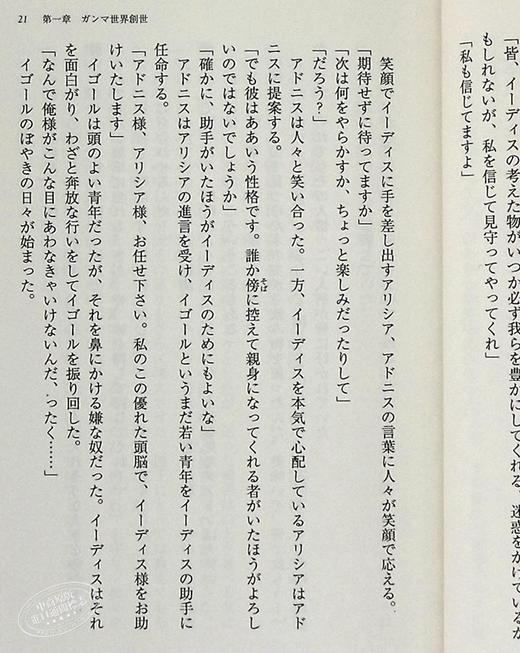 「皆、イーディスの考えた物がいつか必ず我らを豊かにしてくれる。迷惑をかけているか
もしれないが、私を信じて見守ってやってくれ」
「私も信じてますよ」
21 第一章 ガンマ世界創世
笑顔でイーディスに手を差し出すアリシア、アドニスの言葉に人々が笑顔で応える。
「期待せずに待ってますか」
「次は何をやらかすか、ちょっと楽しみだったりして」
「だろう?」
アドニスは人々と笑い合った。一方、イーディスを本気で心配しているアリシアはアド
ニスに提案する。
「でも彼はああいう性格です。誰か傍に控えて親身になってくれる者がいたほうがよろし
いのではないでしょうか」
「確かに、助手がいたほうがイーディスのためにもよいな」
アドニスはアリシアの進言を受け、イゴールというまだ若い青年をイーディスの助手に
任命する。
「アドニス様、アリシア様、お任せ下さい。私のこの優れた頭脳で、イーディス様をお助
けいたします」
イゴールは頭のよい青年だったが、それを鼻にかける嫌な奴だった。イーディスはそれ
を面白がり、わざと奔放な行いをしてイゴールを振り回した。
「なんで俺様がこんな目にあわなきゃいけないんだ、ったく……」
イゴールのぼやきの日々が始まった。